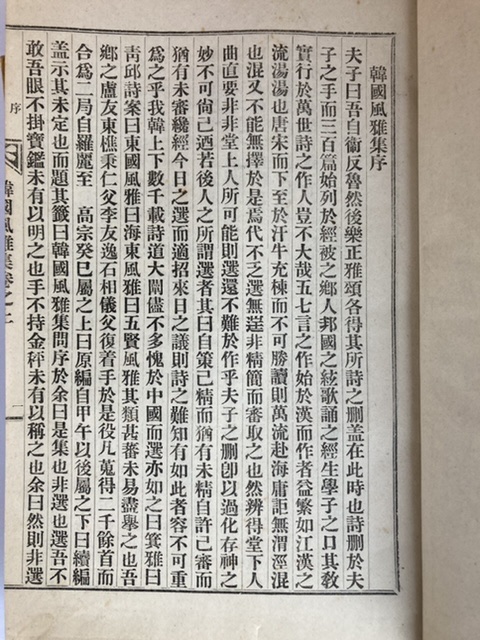 韓國風雅集序
夫子曰吾自衞反魯然後樂正雅頌各得其所詩之刪盖在此時也詩刪於夫
子之手而三百篇始列於經被之鄉人邦國之絃歌誦之經生學子之口其敎
實行於萬世詩之作人豈不大哉五七言之作始於漢而作者益繁如江漢之
流湯湯也唐宋而下至於汗牛充棟而不可勝讀則萬流赴海庸詎無渭涇混
也混又不能無擇於是焉代不乏選無選非精簡而審取之也然辨得堂下人
曲直要非非堂上人所可能則選還不難於作乎夫子之刪卽以過化存神之
妙不可尙已廼若後人之所謂選者其曰自策己精而猶有未精自許己審而
猶有未審纔經今日之選而適招來日之議則詩之難知有如此者容不可重
爲之乎我韓上下數千載詩道大闡儘不多愧於中國而選亦如之曰箕雅曰
靑邱詩案曰東國風雅曰海東風雅曰五賢風雅其類甚蕃未易盡擧之也吾
鄉之盧友東樵秉仁父李友逸石相儀父復着手於是役凡蒐得二千餘首而
合爲二局自羅麗至　高宗癸巳屬之上曰原編自甲午以後屬之下曰續編
盖示其未定也而題其籤曰韓國風雅集問序於余曰是集也非選也選吾不
敢吾眼不掛寶鑑未有以明之也手不持金秤未有以稱之也余曰然則非選
序
韓國風雅集卷之一
一